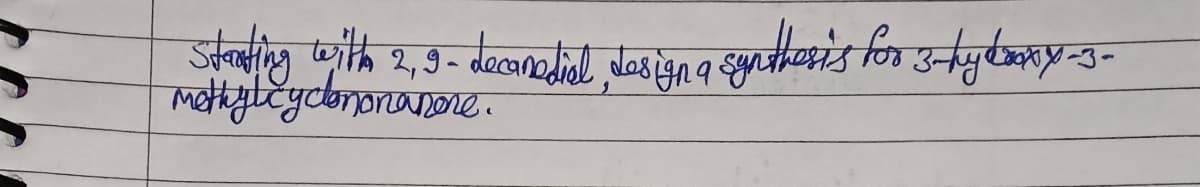 Starting with 2,9-decanedial, design a synthesis for 3-hydroxy-3-
methylcyclononanone.